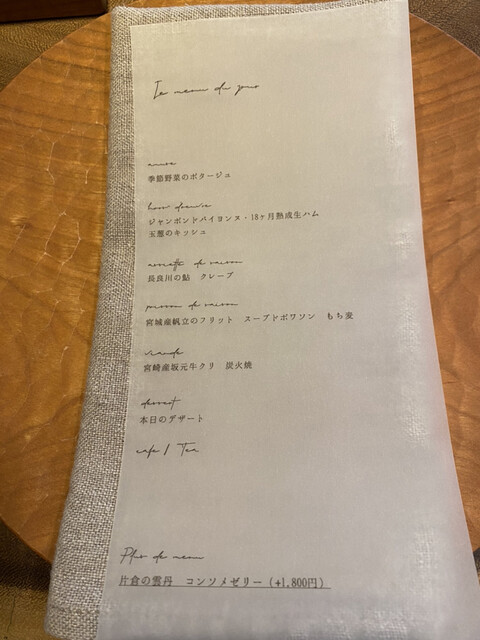 Le menu du jour
amuse
季節野菜のポタージュ
hors d'œuvre
ジャンボンドバイヨンヌ・18ヶ月熟成生ハム
玉葱のキッシュ
assiette de saison
長良川の鮎 クレープ
poisson de saison
宮城産帆立のフリット スープドポワソン もち麦
viande
宮崎産坂元牛クリ 炭火焼
dessert
本日のデザート
cafe / Tea
Plus de menu
片倉の雲丹 コンソメゼリー（+1,800円）